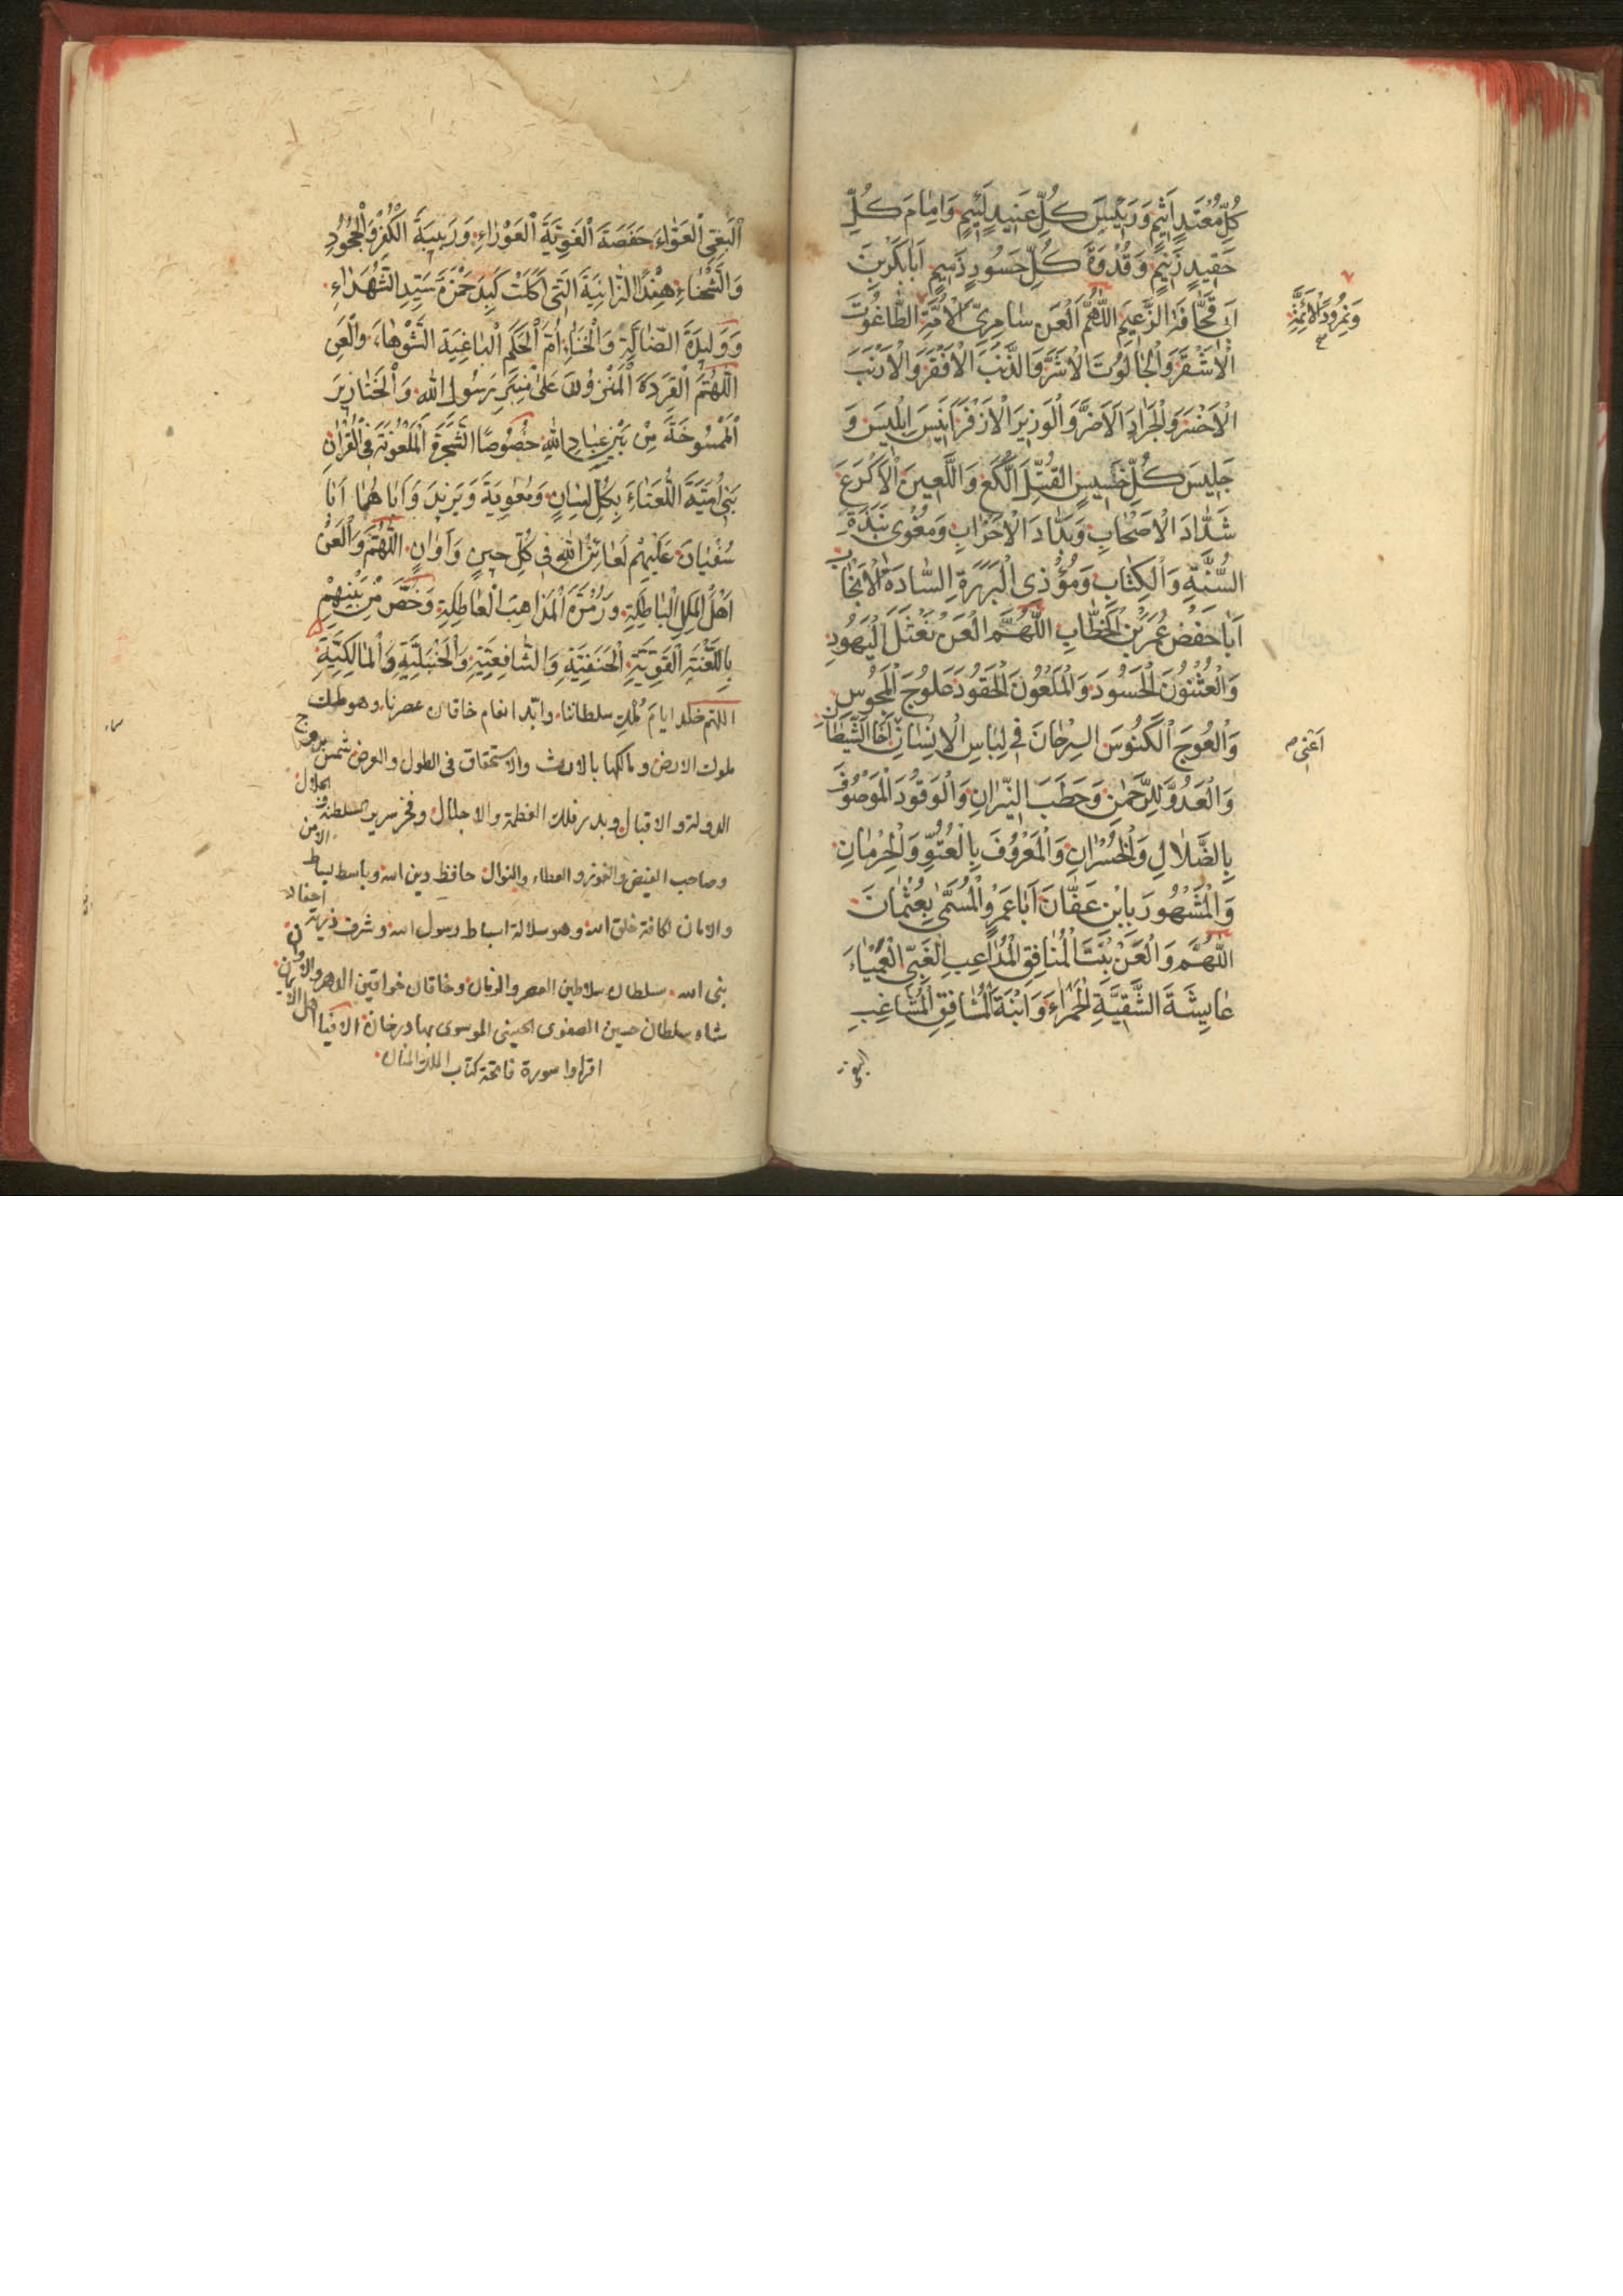 كُلِّ مُعْتَدٍ اَثِيمٍ وَرَئِيسَ كُلِّ عَنِيدٍ لَئِيمٍ وَاِمَامَ كُلِّ
حَقِيدٍ زَنِيمٍ وَقُدْوَةَ كُلِّ حَسُودٍ ذَمِيمٍ اَبَابَكْرِبْنَ
اَبِي قُحَافَةِ الزَّعِيمِ اللّٰهُمَّ الْعَنْ سَامِرِيَّ الْاُمَّةِ الطَّاغُوتَ
وَنَمْرُودَ الْاَئِمَّةِ صح
الْاَشْقَرَ وَالْجَالُوتَ الْاَشَرَّ وَالذَّنَبَ الْاَفْقَرَ وَالْاَرْنَبَ
الْاَخْسَرَ وَالْجَرَادَ الْاَضَرَّ وَالْوَزِيرَ الْاَزْفَرَ اَنِيسَ اِبْلِيسَ وَ
جَلِيسَ كُلِّ خَسِيسٍ اللُّكَعَ وَاللَّعِينَ الْاَكْرَعَ
شَدَّادَ الْاَصْحَابِ وَبَدَّادَ الْاَحْزَابِ وَمُغْوِى نَبَذَةِ
السُّنَّةِ وَالْكِتَابِ وَمُؤْذِى الْبَرَرَةِ السَّادَةِ الْاَنْجَابِ
اَبَاحَفْصٍ عُمَرَبْنَ الْخَطَّابِ اللّٰهُمَّ الْعَنْ نَعْثَلَ الْيَهُودِ
وَالْعُثْنُونَ الْحَسُودَ وَالْمَلْعُونَ الْحَقُودَ عُلُوجَ الْمَجُوسِ
وَالْعُوجَ الْكَنُوسَ السِّرْحَانَ فِي لِبَاسِ الْاِنْسَانِ اَخَا الشَّيْطَانِ
اَعْنِي م
وَالْعَدُوَّ لِلرَّحْمٰنِ وَحَطَبَ النِّيرَانِ وَالْوَقُودَ الْمَوْصُوفَ
بِالضَّلَالِ وَالْخُسْرَانِ وَالْمَعْرُوفَ بِالْعُتُوِّ وَالْحِرْمَانِ
وَالْمَشْهُورَ بِابْنِ عَفَّانَ اَبَاعَمْرٍو الْمُسَمّٰى بِعُثْمَانَ
اللّٰهُمَّ وَالْعَنْ بِنْتَ الْمُنَافِقِ الْمُدَاعِبِ الْغَبِيِّ الْعَمْيَاءَ
عَايِشَةَ الشَّقِيَّةَ الْحَمْرَاءَ وَابْنَةَ الْمُشَاقِقِ الْمُشَاغِبِ
البغي
الْبَغِيِّ الْعَوَّاءَ حَفْصَةَ الْغَوِيَّةَ الْعَوْرَاءَ وَرَبِيبَةَ الْكُفْرِ وَالْجُحُودِ
وَالشَّحْنَاءِ هِنْدًا الزَّانِيَةَ الَّتِي اَكَلَتْ كَبِدَ حَمْزَةَ سَيِّدِ الشُّهَدَاءِ
وَوَلِيدَةَ الضَّلَالَةِ وَالْخَنَاءِ اُمَّ الْحَكَمِ الْبَاغِيَةَ الشَّوْهَاءَ وَالْعَنِ
اللّٰهُمَّ الْقِرَدَةَ الْمَنْزُوَّةَ عَلٰى مِنْبَرِ رَسُولِ اللهِ وَالْخَنَازِيرَ
الْمَمْسُوخَةَ مِنْ بَيْنِ عِبَادِ اللهِ خُصُوصًا الشَّجَرَةَ الْمَلْعُونَةَ فِي الْقُرْآنِ
بَنِي اُمَيَّةَ اللُّعَنَاءَ بِكُلِّ لِسَانٍ وَمُعٰوِيَةَ وَيَزِيدَ وَاَبَاهُمَا اَبَا
سُفْيَانَ عَلَيْهِمْ لَعَائِنُ اللهِ فِي كُلِّ حِينٍ وَاَوَانٍ اللّٰهُمَّ وَالْعَنْ
اَهْلَ الْمِلَلِ الْبَاطِلَةِ وَزُمْرَةَ الْمَذَاهِبِ الْعَاطِلَةِ وَخَصِّصْ مِنْ بَيْنِهِمْ
بِاللَّعْنَةِ الْقَوِيَّةِ الْحَنَفِيَّةِ وَالشَّافِعِيَّةِ وَالْحَنْبَلِيَّةِ وَالْمَالِكِيَّةِ
اللهم خلد ايام مُلكِ سلطاننا وابّد انعام خاقان عصرنا وهو ملك
ملوك الارض ومالكها بالارث والاستحقاق فى الطول والعرض شمس بروج
الدولة والاقبال وبدر فلك العظمة والاجلال وفخر سرير السلطنة و الجلال
وصاحب الفيض والفوز والعطاء والنوال حافظ دين الله وباسط بساط الامن
والامان لكافة خلق الله وهو سلالة اسباط رسول الله وشرف ذرية احفاد
نبى الله سلطان سلاطين العصر والزمان وخاقان خواقين الدهر والاوان
شاه سلطان حسين الصفوى الحسينى الموسوى بهادرخان الا فيا اهل الايمان
اقراوا سورة فاتحة كتاب الملك المنان